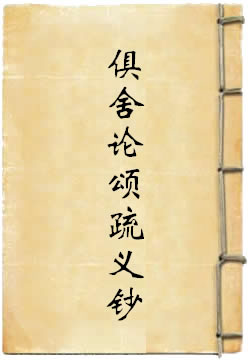 俱舍论颂疏义钞